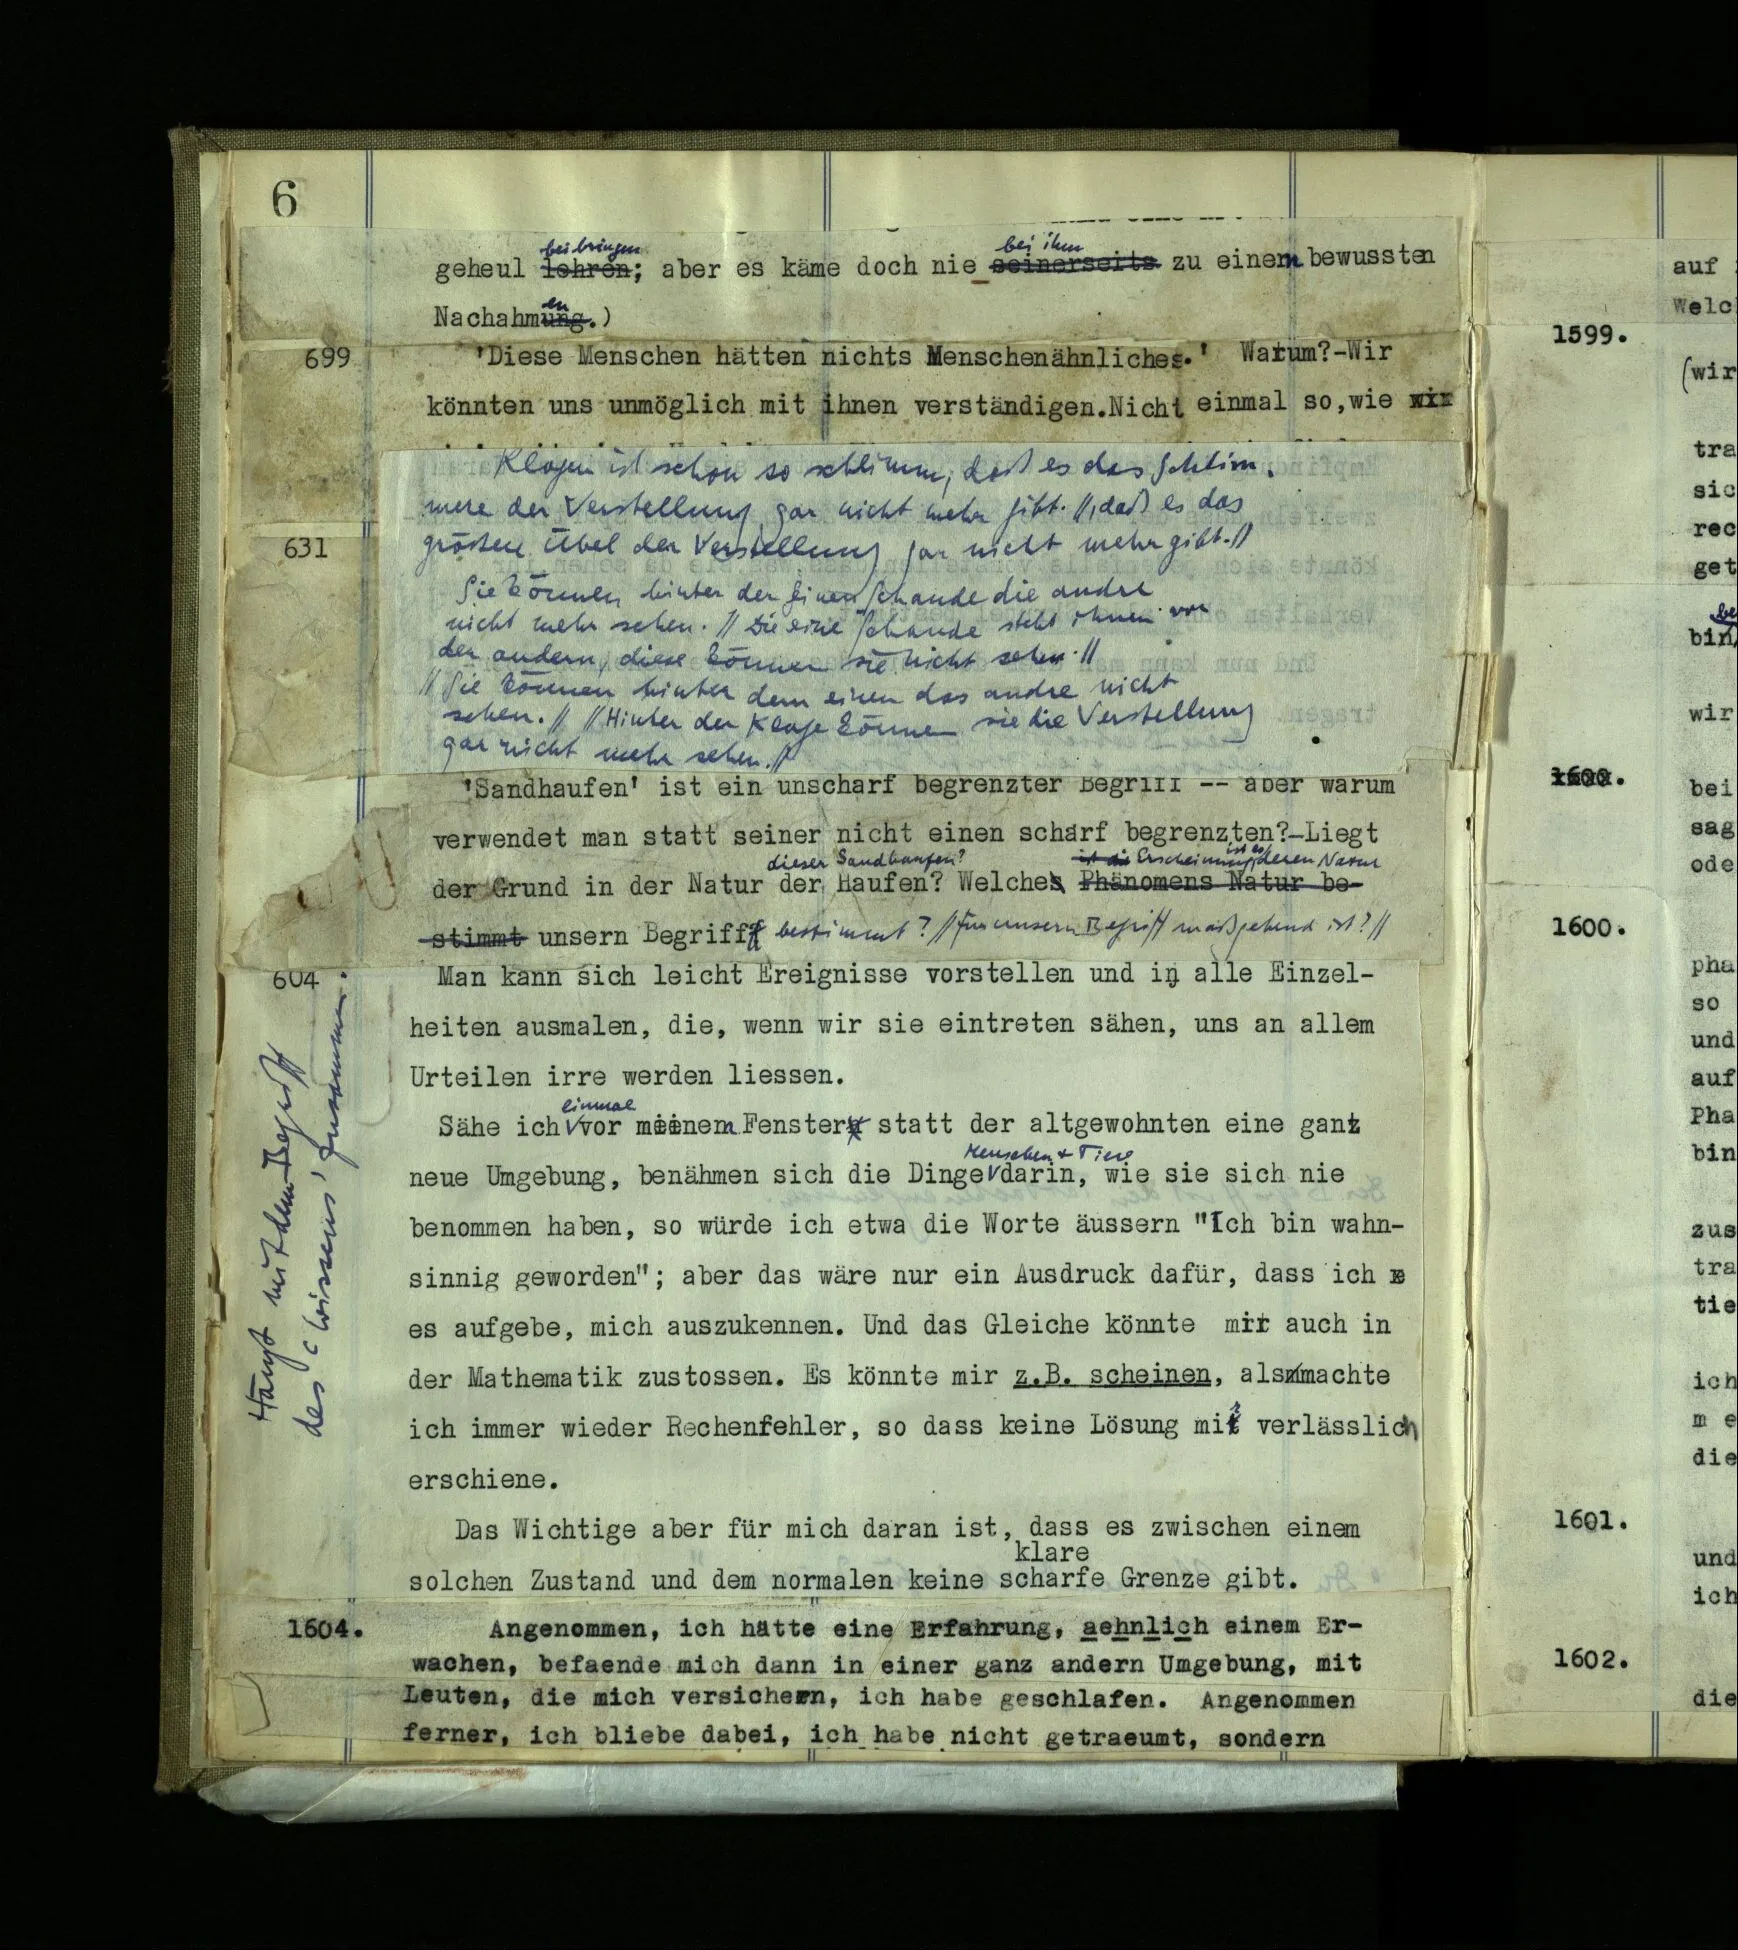 6
beibringen bei ihm
geheul lehren; aber es käme doch nie seinerseits zu einem bewussten
en
Nachahmung.)
699 'Diese Menschen hätten nichts Menschenähnliches.' Warum?-Wir
könnten uns unmöglich mit ihnen verständigen.Nicht einmal so,wie wir
Klagen ist schon so schlimm, daß es das Schlim-
mere der Verstellung gar nicht mehr gibt. //, daß es das
631
größere Übel der Verstellung gar nicht mehr gibt.//
Sie können hinter der einen Schande die andre
nicht mehr sehen. // Die eine Schande steht ihnen vor
der andern, diese können sie nicht sehen.//
// Sie können hinter dem einen das andre nicht
sehen. // // Hinter der Klage können sie die Verstellung
gar nicht mehr sehen.//
'Sandhaufen' ist ein unscharf begrenzter Begriff -- aber warum
verwendet man statt seiner nicht einen scharf begrenzten?-Liegt
dieser Sandhaufen? ist die Erscheinung, ist es, deren Natur
der Grund in der Natur der Haufen? Welches Phänomens Natur be-
stimmt unsern Begriff bestimmt? // für unsern Begriff maßgebend ist? //
604 Man kann sich leicht Ereignisse vorstellen und in alle Einzel-
heiten ausmalen, die, wenn wir sie eintreten sähen, uns an allem
Urteilen irre werden liessen.
einmal
Sähe ich vor meinem Fenster statt der altgewohnten eine ganz
Menschen + Tiere
neue Umgebung, benähmen sich die Dinge darin, wie sie sich nie
benommen haben, so würde ich etwa die Worte äussern "Ich bin wahn-
sinnig geworden"; aber das wäre nur ein Ausdruck dafür, dass ich
es aufgebe, mich auszukennen. Und das Gleiche könnte mir auch in
der Mathematik zustossen. Es könnte mir z.B. scheinen, als machte
ich immer wieder Rechenfehler, so dass keine Lösung mir verlässlich
erschiene.
Das Wichtige aber für mich daran ist, dass es zwischen einem
klare
solchen Zustand und dem normalen keine scharfe Grenze gibt.
Hängt mit dem Begriff
des 'Wissens' zusammen.
1604. Angenommen, ich hätte eine Erfahrung, aehnlich einem Er-
wachen, befaende mich dann in einer ganz andern Umgebung, mit
Leuten, die mich versichern, ich habe geschlafen. Angenommen
ferner, ich bliebe dabei, ich habe nicht getraeumt, sondern
auf
Welc
1599.
(wir
tra
sic
rec
get
bin
wir
1600.
bei
sag
ode
1600.
pha
so
und
auf
Pha
bin
zus
tra
tie
ich
m e
die
1601.
und
ich
1602.
die